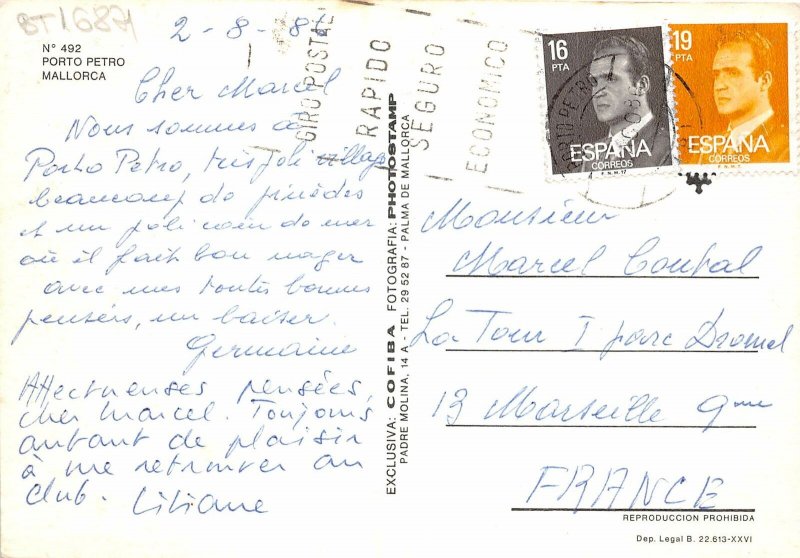 BT16871
N° 492
PORTO PETRO
MALLORCA
2-8-86
Cher Marcel
Nous sommes à
Porto Petro, très joli village
beaucoup de pinèdes
et un joli coin de mer
où il fait bon nager
avec mes toutes bonnes
pensées, un baiser.
Germaine
Affectueuses pensées,
cher Marcel. Toujours
autant de plaisir
à me retrouver au
club. Liliane
GIRO POSTAL
RAPIDO
SEGURO
ECONOMICO
EXCLUSIVA: COFIBA FOTOGRAFIA: PHOTOSTAMP
PADRE MOLINA, 14 A - TEL. 29 52 87 - PALMA DE MALLORCA
16
PTA
ESPAÑA
CORREOS
F.N.M.T.
19
PTA
ESPAÑA
CORREOS
F.N.M.T.
PORTO PETRO
Monsieur
Marcel
La Tour I parc Dromel
13 Marseille 9me
FRANCE
REPRODUCCION PROHIBIDA
Dep. Legal B. 22.613-XXVI